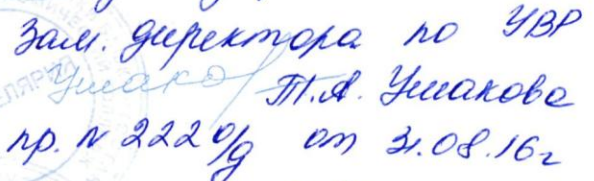 Зам. директора по УВР
Ушако Т.А. Ушакова
пр. N 222 о/д от 31.08.16г